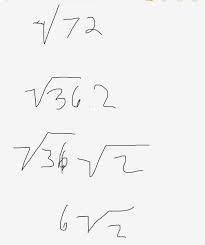 √72
√36 2
√36 √2
6√2